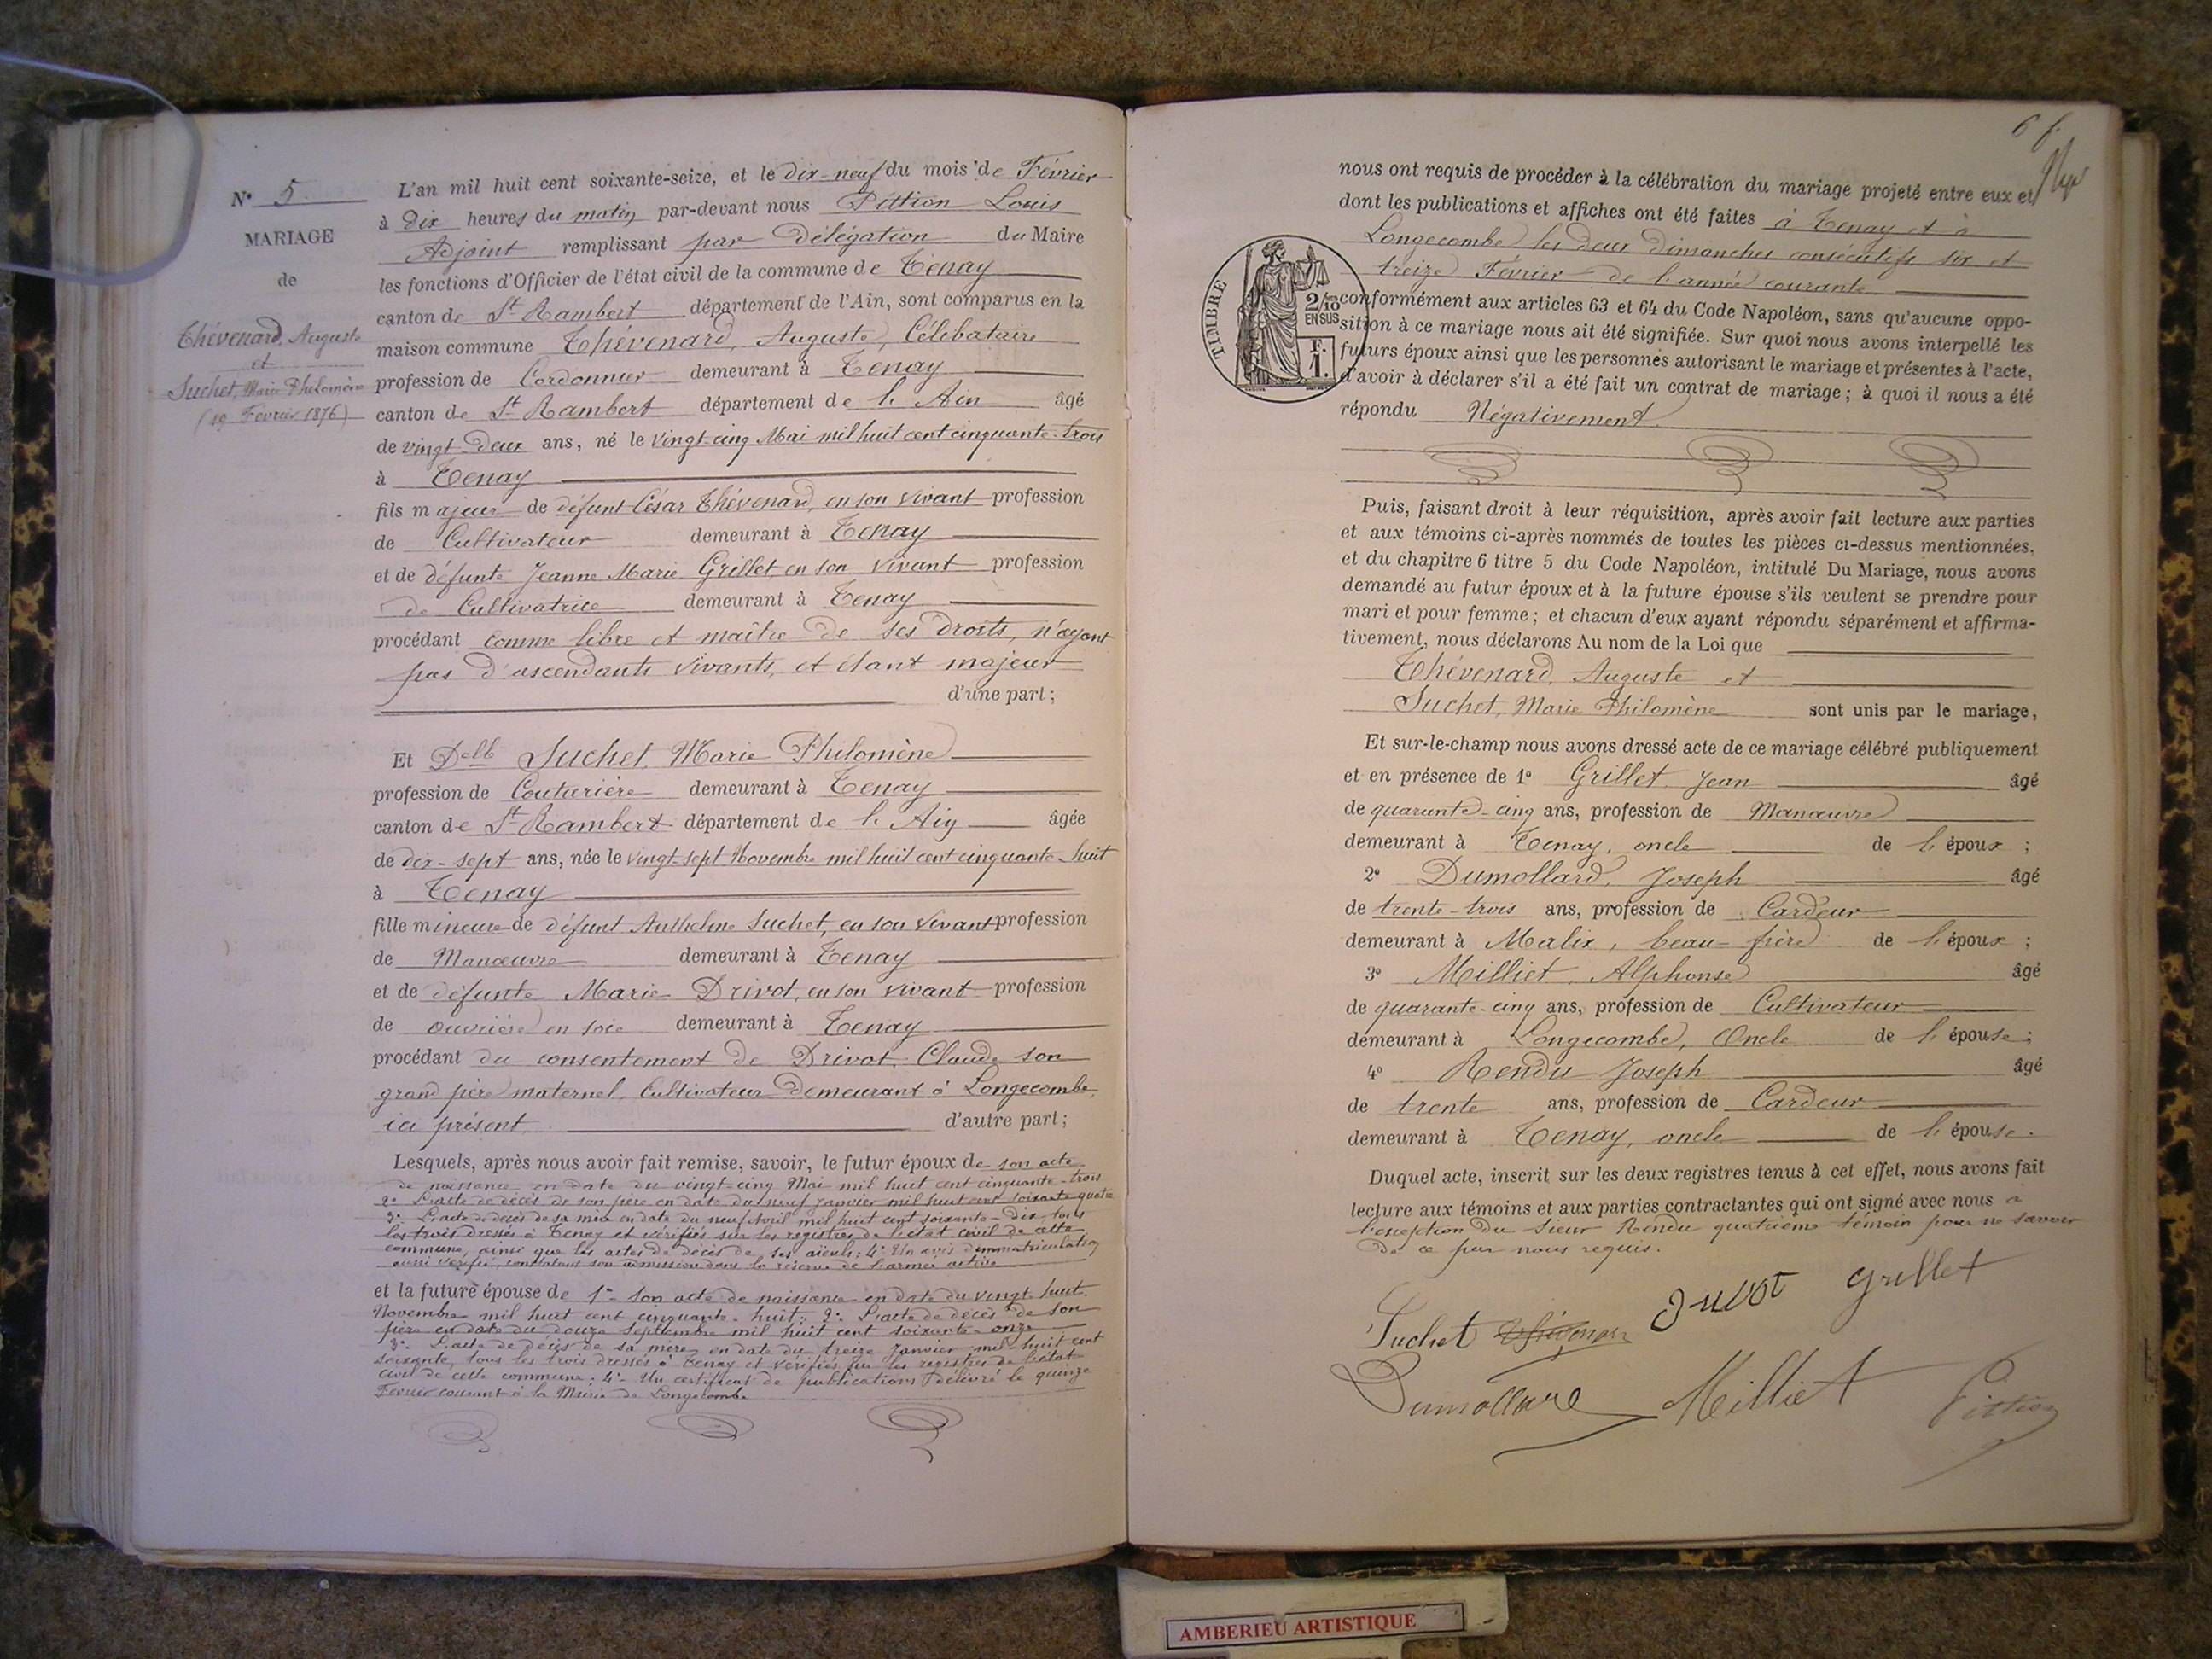 N° 5
MARIAGE
de
Thévenard, Auguste
et
Suchet, Marie Philomène
(19 Février 1876)
L'an mil huit cent soixante-seize, et le dix-neuf du mois de Février
à dix heures du matin par-devant nous Pittion Louis
Adjoint remplissant par délégation du Maire
les fonctions d'Officier de l'état civil de la commune de Tenay
canton de St Rambert département de l'Ain, sont comparus en la
maison commune Thévenard, Auguste, Célibataire
profession de Cordonnier demeurant à Tenay
canton de St Rambert département de l'Ain âgé
de vingt-deux ans, né le vingt-cinq Mai mil huit cent cinquante-trois
à Tenay
fils majeur de défunt César Thévenard, en son vivant profession
de Cultivateur demeurant à Tenay
et de défunte Jeanne Marie Grillet, en son vivant profession
de Cultivatrice demeurant à Tenay
procédant comme libre et maître de ses droits, n'ayant
pas d'ascendants vivants, et étant majeur
d'une part;
Et Delle Suchet, Marie Philomène
profession de Couturière demeurant à Tenay
canton de St Rambert département de l'Ain âgée
de dix-sept ans, née le vingt-sept Novembre mil huit cent cinquante-huit
à Tenay
fille mineure de défunt Anthelme Suchet, en son vivant profession
de Manœuvre demeurant à Tenay
et de défunte Marie Drivot, en son vivant profession
de ouvrière en soie demeurant à Tenay
procédant du consentement de Drivot, Claude son
grand père maternel, Cultivateur demeurant à Longecombe,
ici présent d'autre part;
Lesquels, après nous avoir fait remise, savoir, le futur époux de son acte
de naissance en date du vingt-cinq Mai mil huit cent cinquante-trois
2° L'acte de décès de son père en date du neuf Janvier mil huit cent soixante-quatre
3° L'acte de décès de sa mère en date du neuf Avril mil huit cent soixante-dix, tous
les trois dressés à Tenay et vérifiés sur les registres de l'état civil de cette
commune, ainsi que les actes de décès de ses aïeuls; 4° Un avis d'immatriculation
aussi vérifié, constatant son admission dans la réserve de l'armée active
et la future épouse de 1° son acte de naissance en date du vingt huit
Novembre mil huit cent cinquante-huit; 2° L'acte de décès de son
père en date du douze Septembre mil huit cent soixante-onze
3° L'acte de décès de sa mère, en date du treize Janvier mil huit cent
soixante, tous les trois dressés à Tenay et vérifiés sur les registres de l'état
civil de cette commune; 4° Un certificat de publications délivré le quinze
Février courant à la Mairie de Longecombe
6 f.
nous ont requis de procéder à la célébration du mariage projeté entre eux et
dont les publications et affiches ont été faites à Tenay et à
Longecombe les deux dimanches consécutifs six et
treize Février de l'année courante
conformément aux articles 63 et 64 du Code Napoléon, sans qu'aucune oppo-
sition à ce mariage nous ait été signifiée. Sur quoi nous avons interpellé les
futurs époux ainsi que les personnes autorisant le mariage et présentes à l'acte,
d'avoir à déclarer s'il a été fait un contrat de mariage; à quoi il nous a été
répondu Négativement
TIMBRE
2/10 EN SUS
F. 1.
Puis, faisant droit à leur réquisition, après avoir fait lecture aux parties
et aux témoins ci-après nommés de toutes les pièces ci-dessus mentionnées,
et du chapitre 6 titre 5 du Code Napoléon, intitulé Du Mariage, nous avons
demandé au futur époux et à la future épouse s'ils veulent se prendre pour
mari et pour femme; et chacun d'eux ayant répondu séparément et affirma-
tivement, nous déclarons Au nom de la Loi que
Thévenard, Auguste et
Suchet, Marie Philomène sont unis par le mariage,
Et sur-le-champ nous avons dressé acte de ce mariage célébré publiquement
et en présence de 1° Grillet Jean âgé
de quarante-cinq ans, profession de Manœuvre
demeurant à Tenay, oncle de l'époux;
2° Dumollard, Joseph âgé
de trente-trois ans, profession de Cardeur
demeurant à Malix, beau-frère de l'époux;
3° Milliet, Alphonse âgé
de quarante-cinq ans, profession de Cultivateur
demeurant à Longecombe, Oncle de l'épouse;
4° Rendu Joseph âgé
de trente ans, profession de Cardeur
demeurant à Tenay, oncle de l'épouse.
Duquel acte, inscrit sur les deux registres tenus à cet effet, nous avons fait
lecture aux témoins et aux parties contractantes qui ont signé avec nous à
l'exception du sieur Rendu quatrième témoin pour ne savoir
de ce par nous requis.
Suchet Thévenard Drivot Grillet
Dumollard Milliet Pittion
AMBERIEU ARTISTIQUE